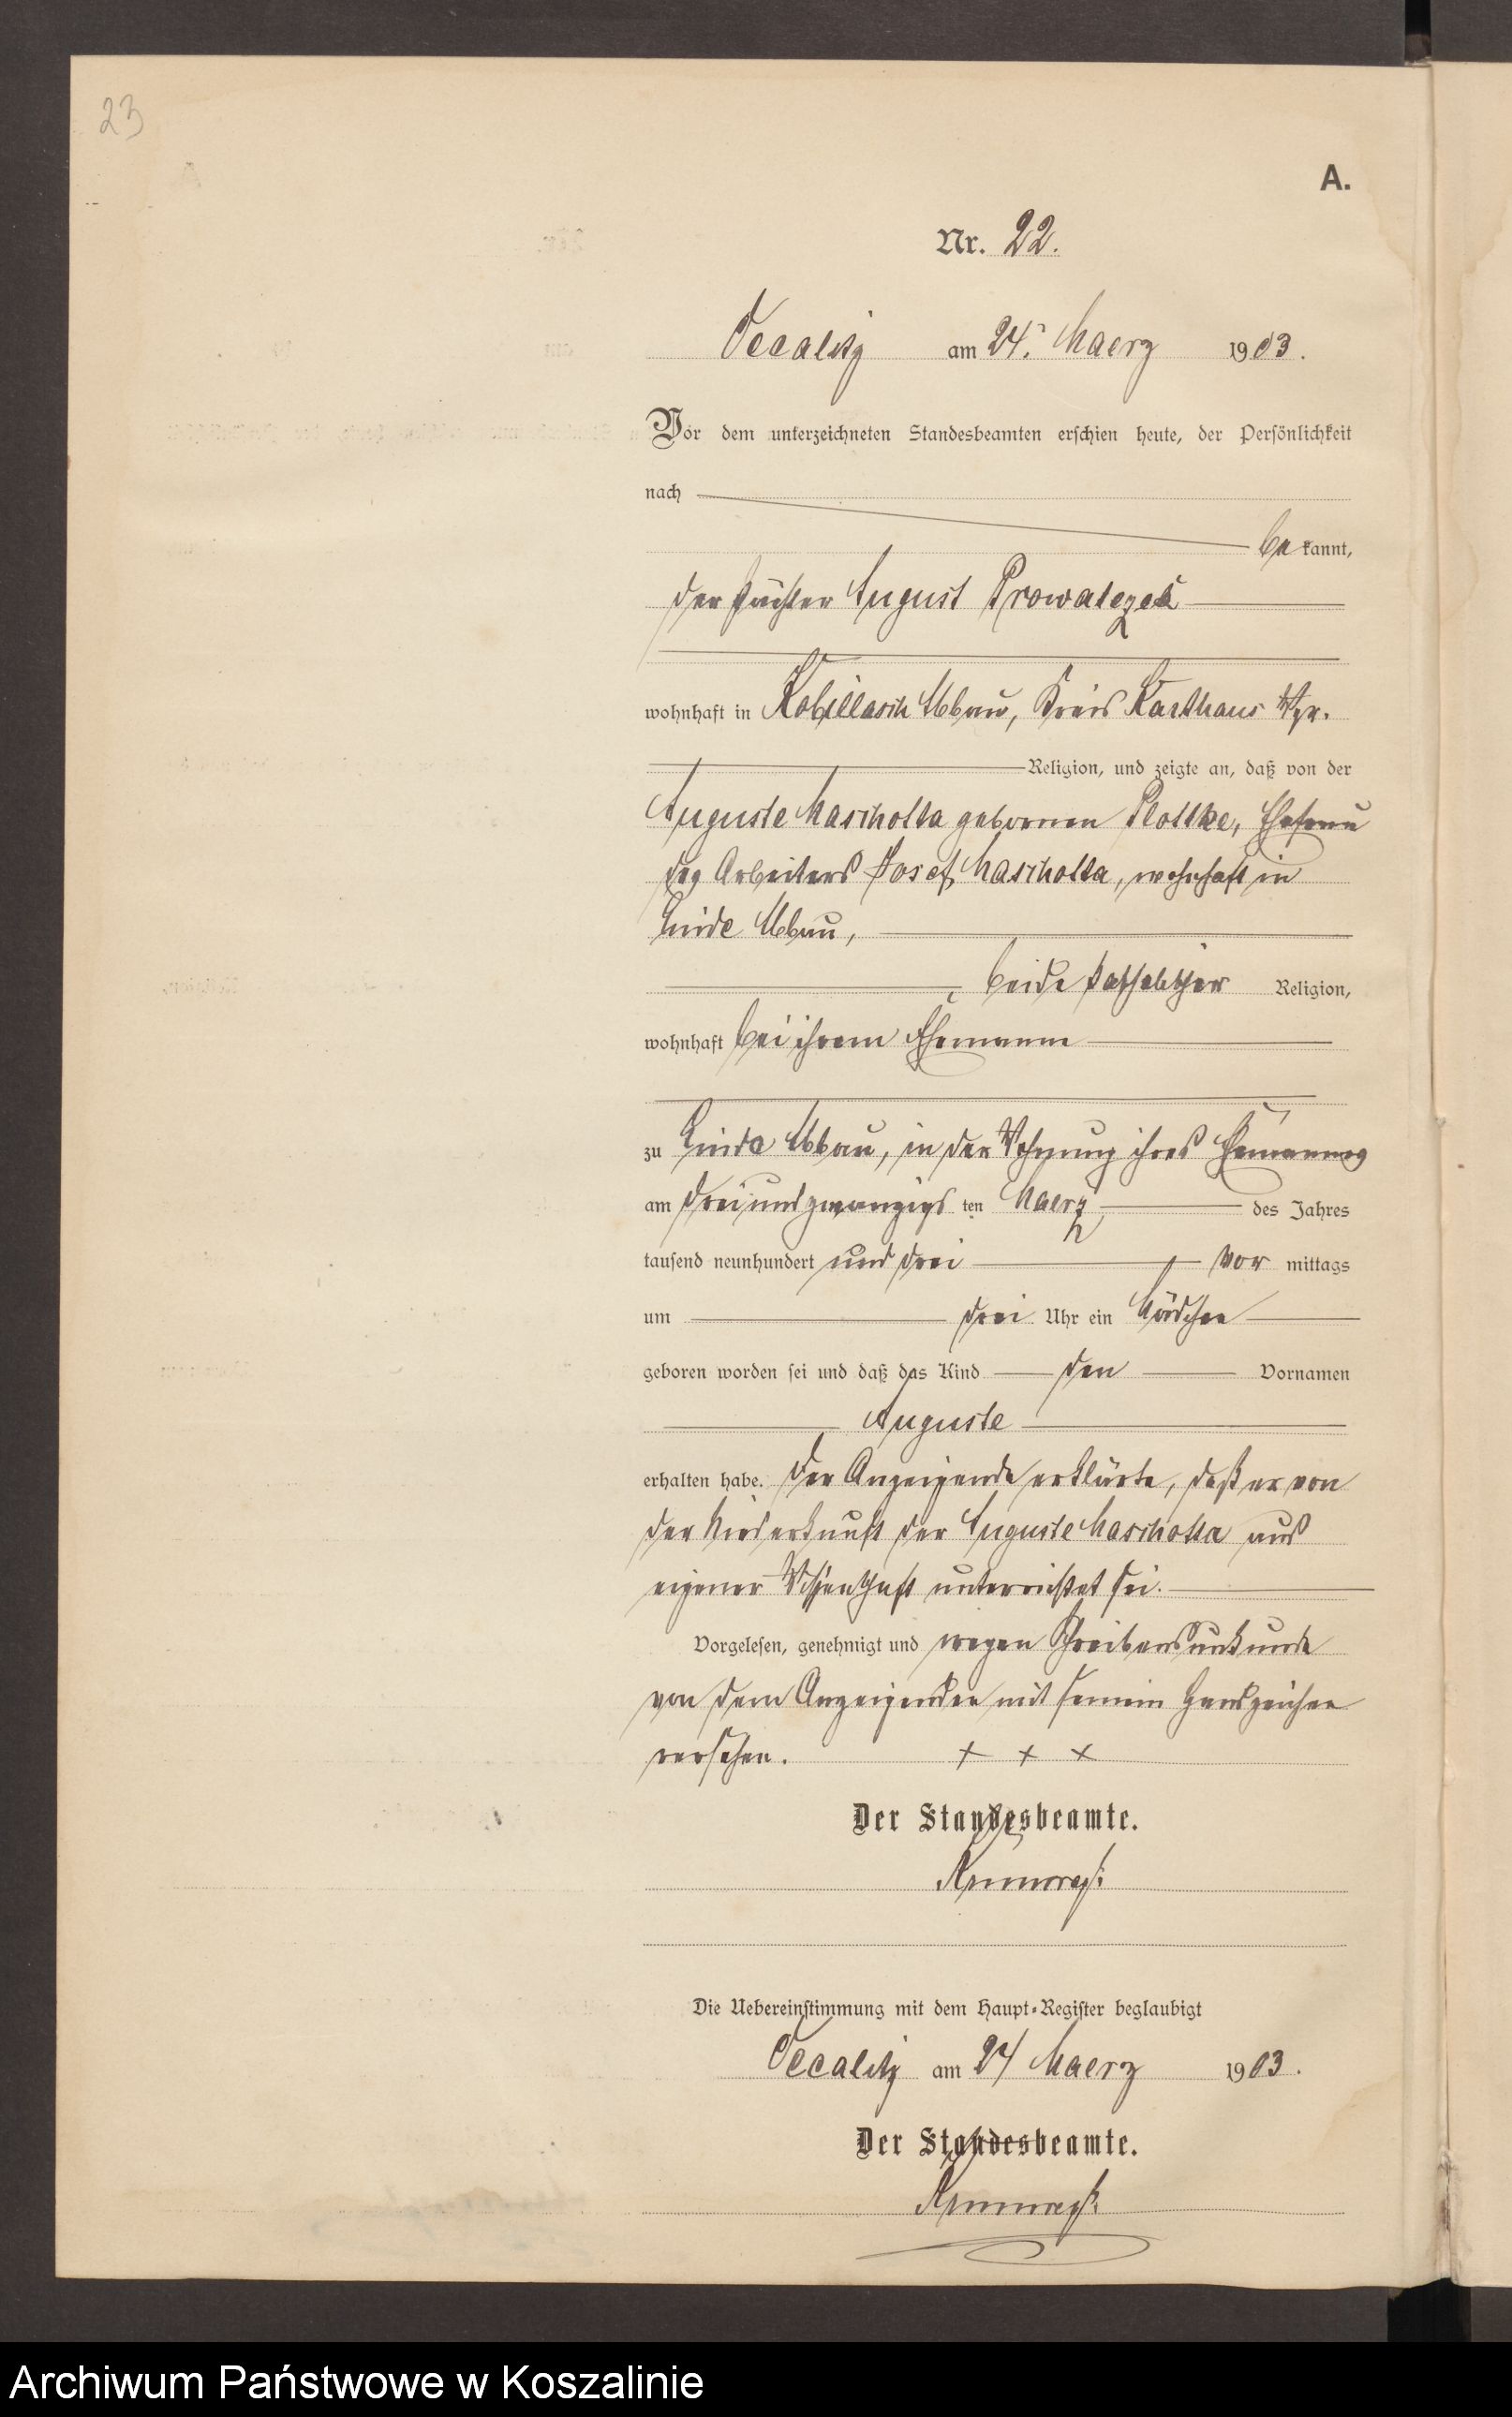 23
A.
Nr. 22.
am 24. Maerz 1903.
Vor dem unterzeichneten Standesbeamten erschien heute, der Persönlichkeit
nach
be kannt,
der Pächter August Prowatczek
wohnhaft in Kobillasch Abbau, Kreis Karthaus Wpr.
Religion, und zeigte an, daß von der
Auguste Maschotta geborenen Plottke, Ehefrau
des Arbeiters Josef Maschotta, wohnhaft in
Linde Abbau,
beide katholischer Religion,
wohnhaft bei ihrem Ehemanne
zu Linde Abbau, in der Wohnung ihres Ehemannes
am dreiundzwanzigs ten Maerz des Jahres
tausend neunhundert und drei Vor mittags
um drei Uhr ein Mädchen
geboren worden sei und daß das Kind den Vornamen
Auguste
erhalten habe. Der Anzeigende erklärte, daß er von
der Niederkunft der Auguste Maschotta aus
eigener Wissenschaft unterrichtet sei.
Vorgelesen, genehmigt und wegen Schreibensunkunde
von dem Anzeigenden mit seinem Handzeichen
versehen. + + +
Der Standesbeamte.
Die Uebereinstimmung mit dem Haupt-Register beglaubigt
am 24 Maerz 1903.
Der Standesbeamte.
Archiwum Państwowe w Koszalinie